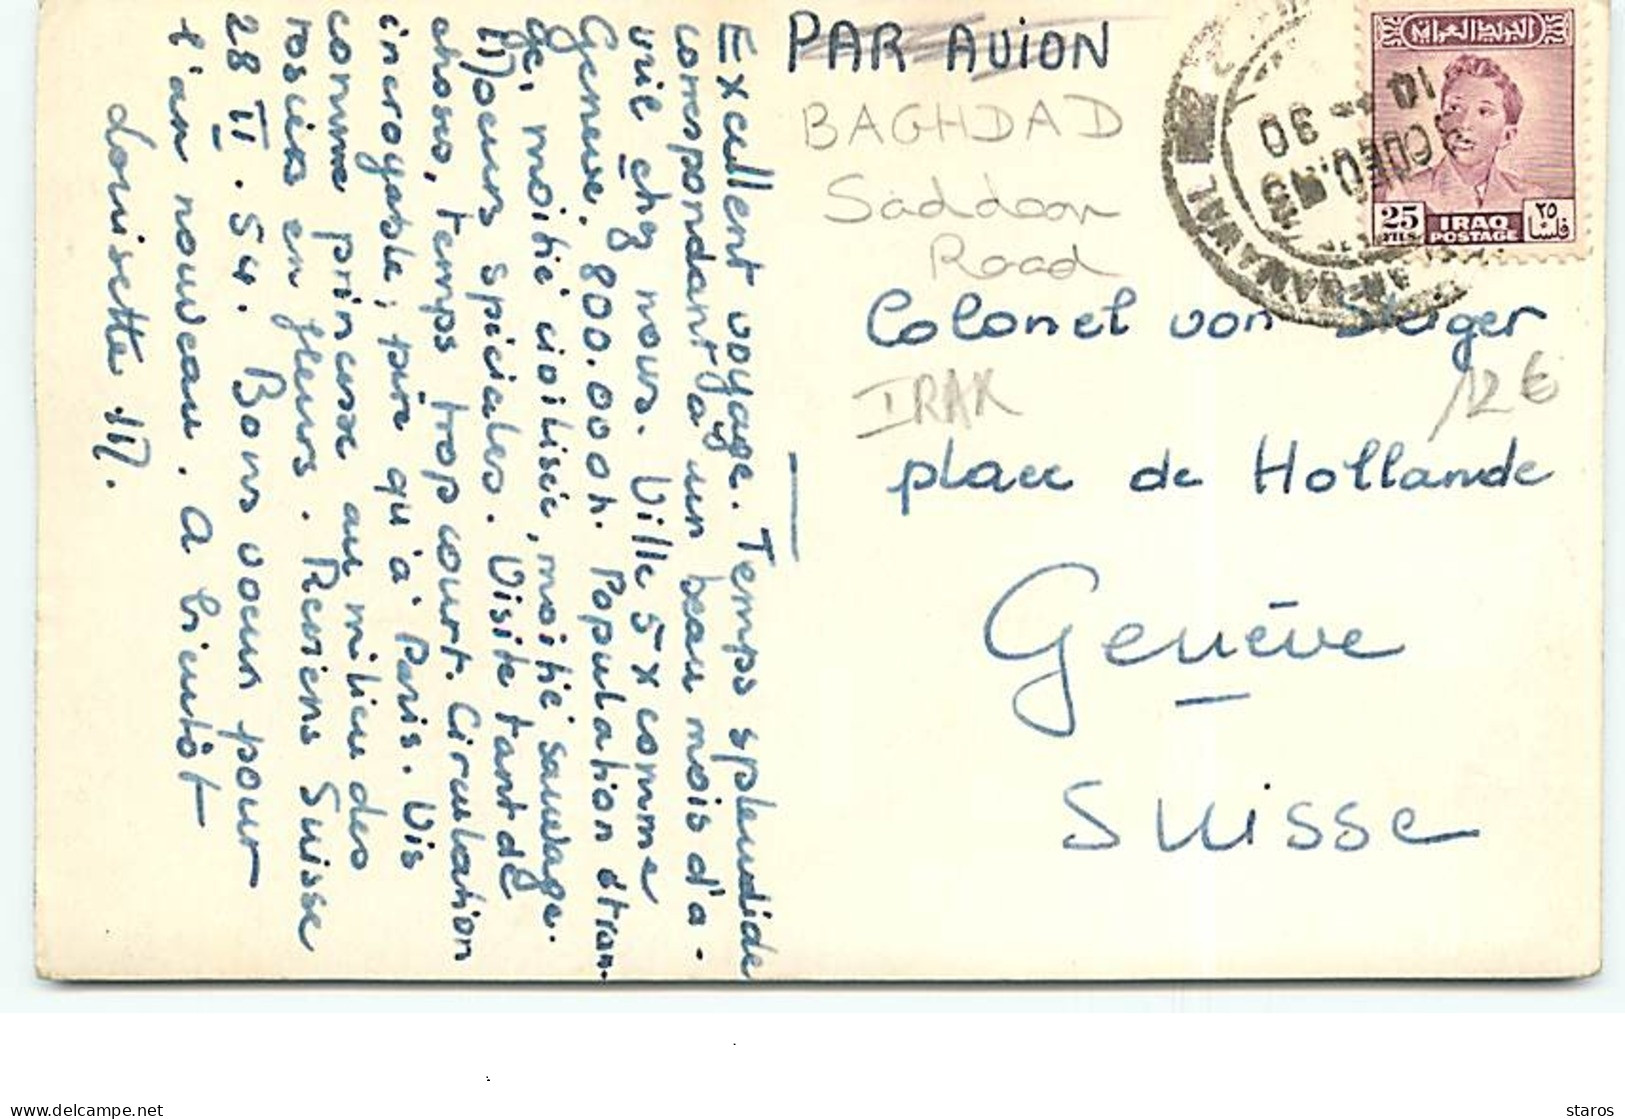 PAR AVION
BAGHDAD
Saddoon
Road
25
FILS
IRAQ
POSTAGE
٢٥
فلسا
10
30
Colonel von Steiger
IRAK
12€
place de Hollande
Genève
Suisse
Excellent voyage. Temps splendide
correspondant à un beau mois d'a-
vril chez nous. Ville 5x comme
Genève, 800.000 h. Population étran-
ge, moitié civilisée, moitié sauvage.
Moeurs spéciales. Visite tant de
choses, temps trop court. Circulation
incroyable, pire qu'à Paris. Vis
comme princesse au milieu des
rosiers en fleurs. Reviens Suisse
28 II. 54. Bons voeux pour
l'an nouveau. A bientôt
Louisette M.
staros